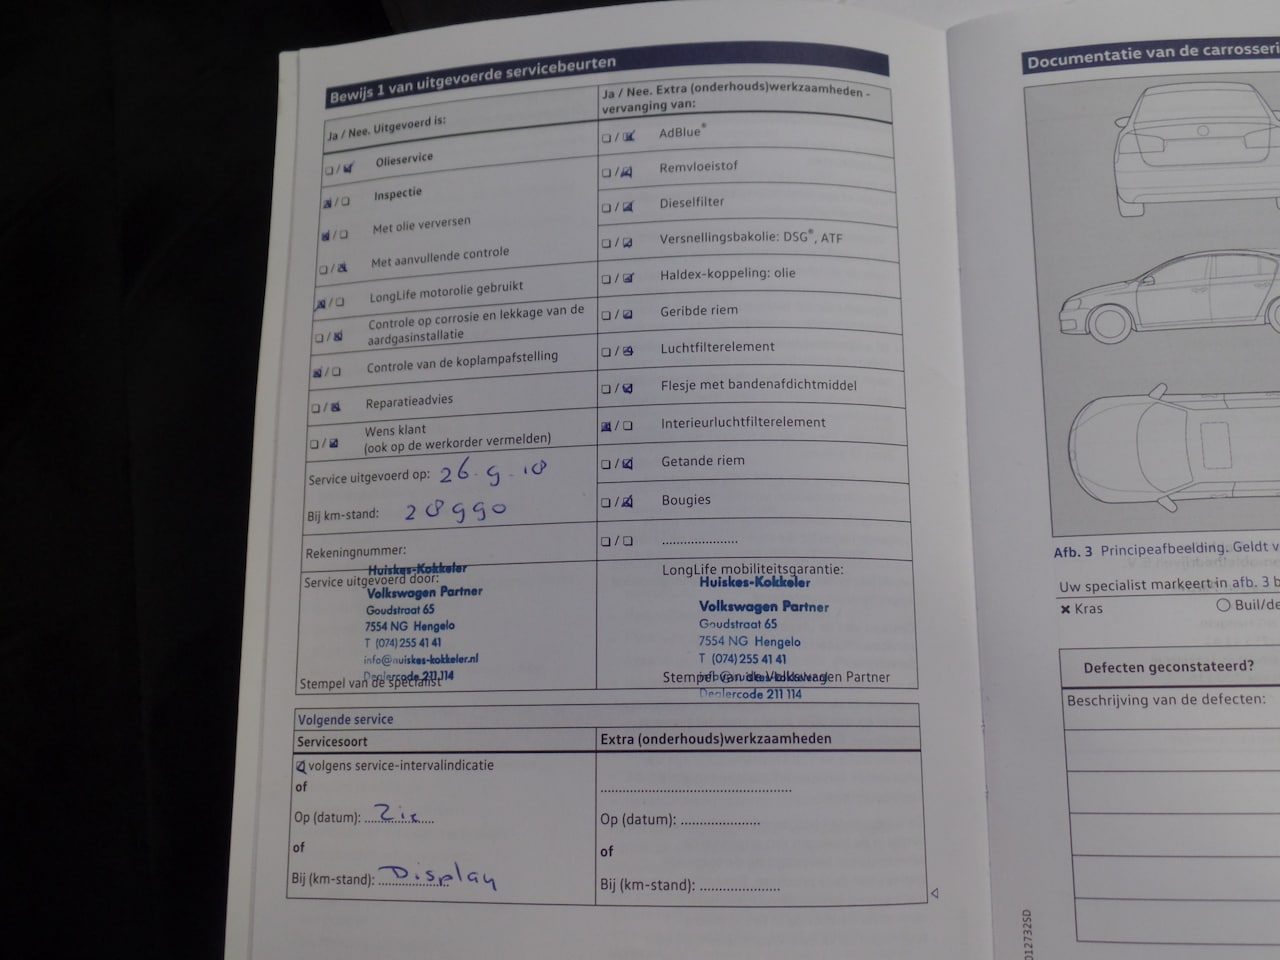 Bewijs 1 van uitgevoerde servicebeurten
Ja / Nee. Uitgevoerd is:
Olieservice
Inspectie
Met olie verversen
Met aanvullende controle
LongLife motorolie gebruikt
Controle op corrosie en lekkage van de
aardgasinstallatie
Controle van de koplampafstelling
Reparatieadvies
Wens klant
(ook op de werkorder vermelden)
Service uitgevoerd op: 26-9-18
Bij km-stand: 28990
Rekeningnummer:
Service uitgevoerd door:
Huiskes-Kokkeler
Volkswagen Partner
Goudstraat 65
7554 NG Hengelo
T (074) 255 41 41
info@huiskes-kokkeler.nl
Dealercode 211 114
Stempel van de specialist
Ja / Nee. Extra (onderhouds)werkzaamheden -
vervanging van:
AdBlue®
Remvloeistof
Dieselfilter
Versnellingsbakolie: DSG®, ATF
Haldex-koppeling: olie
Geribde riem
Luchtfilterelement
Flesje met bandenafdichtmiddel
Interieurluchtfilterelement
Getande riem
Bougies
....................
LongLife mobiliteitsgarantie:
Huiskes-Kokkeler
Volkswagen Partner
Goudstraat 65
7554 NG Hengelo
T (074) 255 41 41
Stempel van de Volkswagen Partner
Dealercode 211 114
Volgende service
Servicesoort
volgens service-intervalindicatie
of
Op (datum): Zie
of
Bij (km-stand): Display
Extra (onderhouds)werkzaamheden
Op (datum): ....................
of
Bij (km-stand): ....................
Documentatie van de carrosseri
Afb. 3 Principeafbeelding. Geldt v
Uw specialist markeert in afb. 3 b
× Kras
○ Buil/de
Defecten geconstateerd?
Beschrijving van de defecten:
012732SD